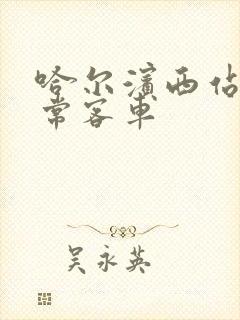 哈尔滨西佔
常客車
吴永英